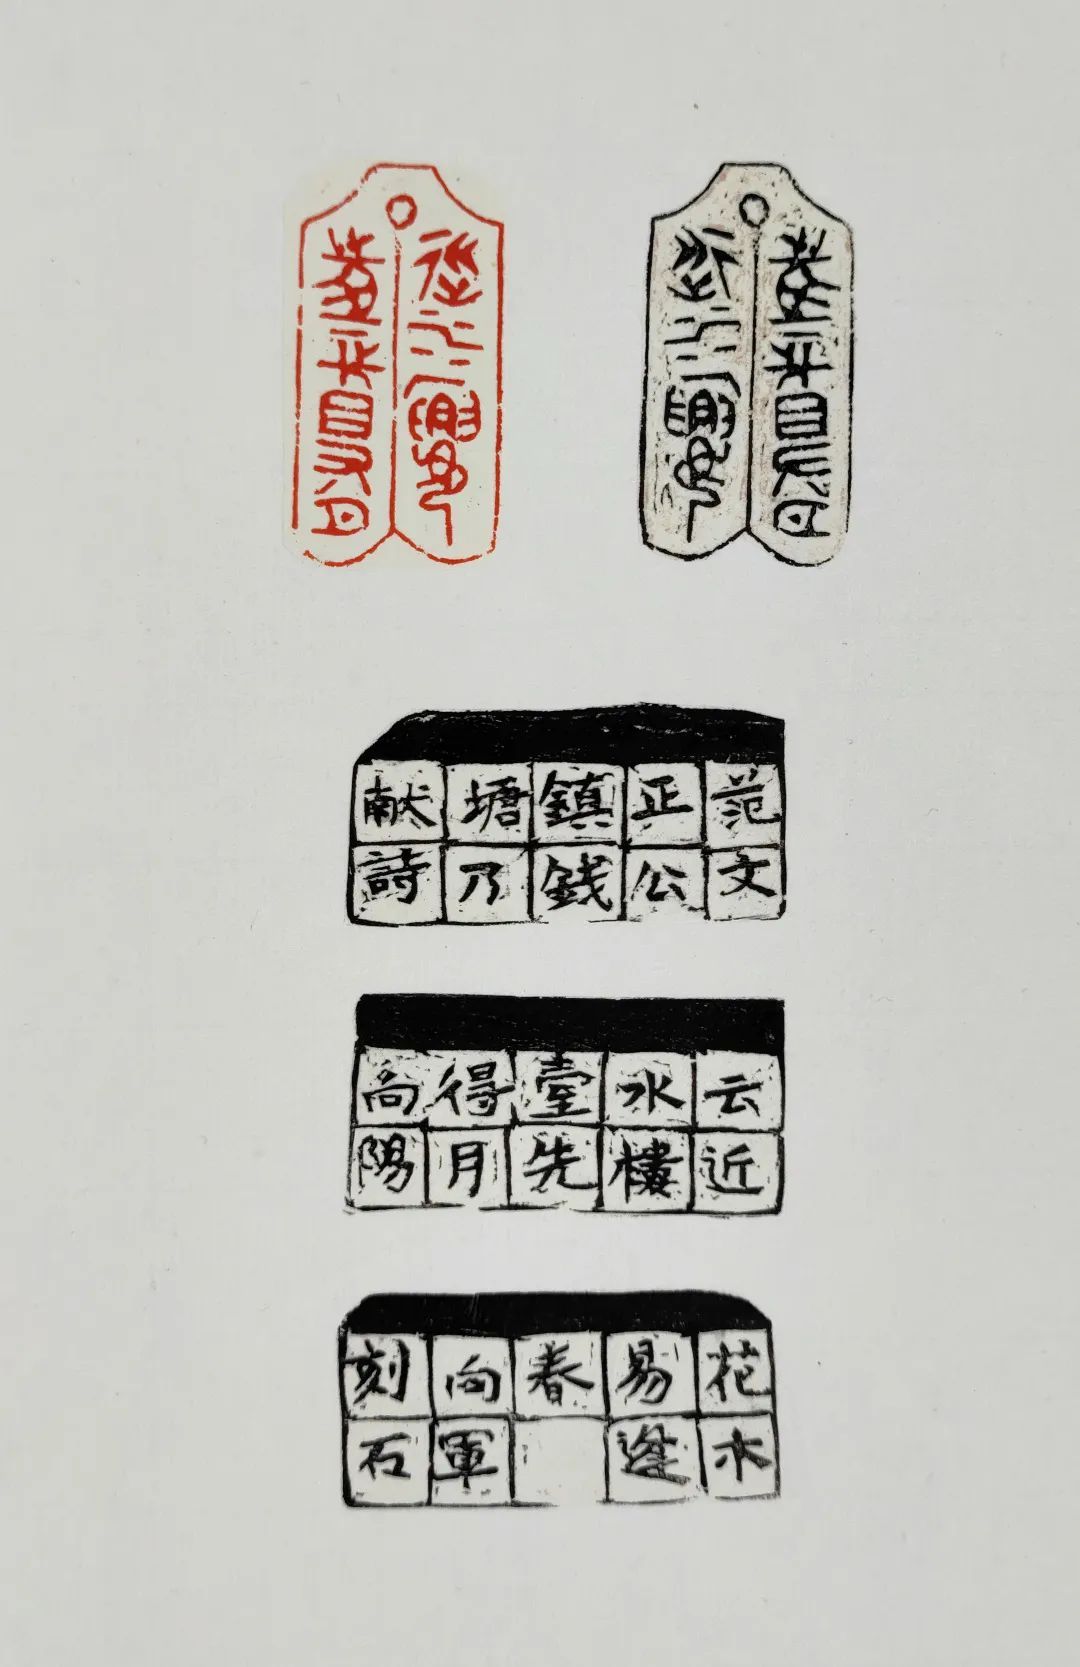 范文
正公
鎮銭
塘乃
献詩
云近
水樓
臺先
得月
向陽
花木
易逢
春
向軍
刻石